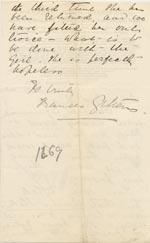 the third time she has
been returned and we
have fitted her out
twice – What is to
be done with the
Girl. She is perfectly
hopeless
Yrs truly
Frances
1869